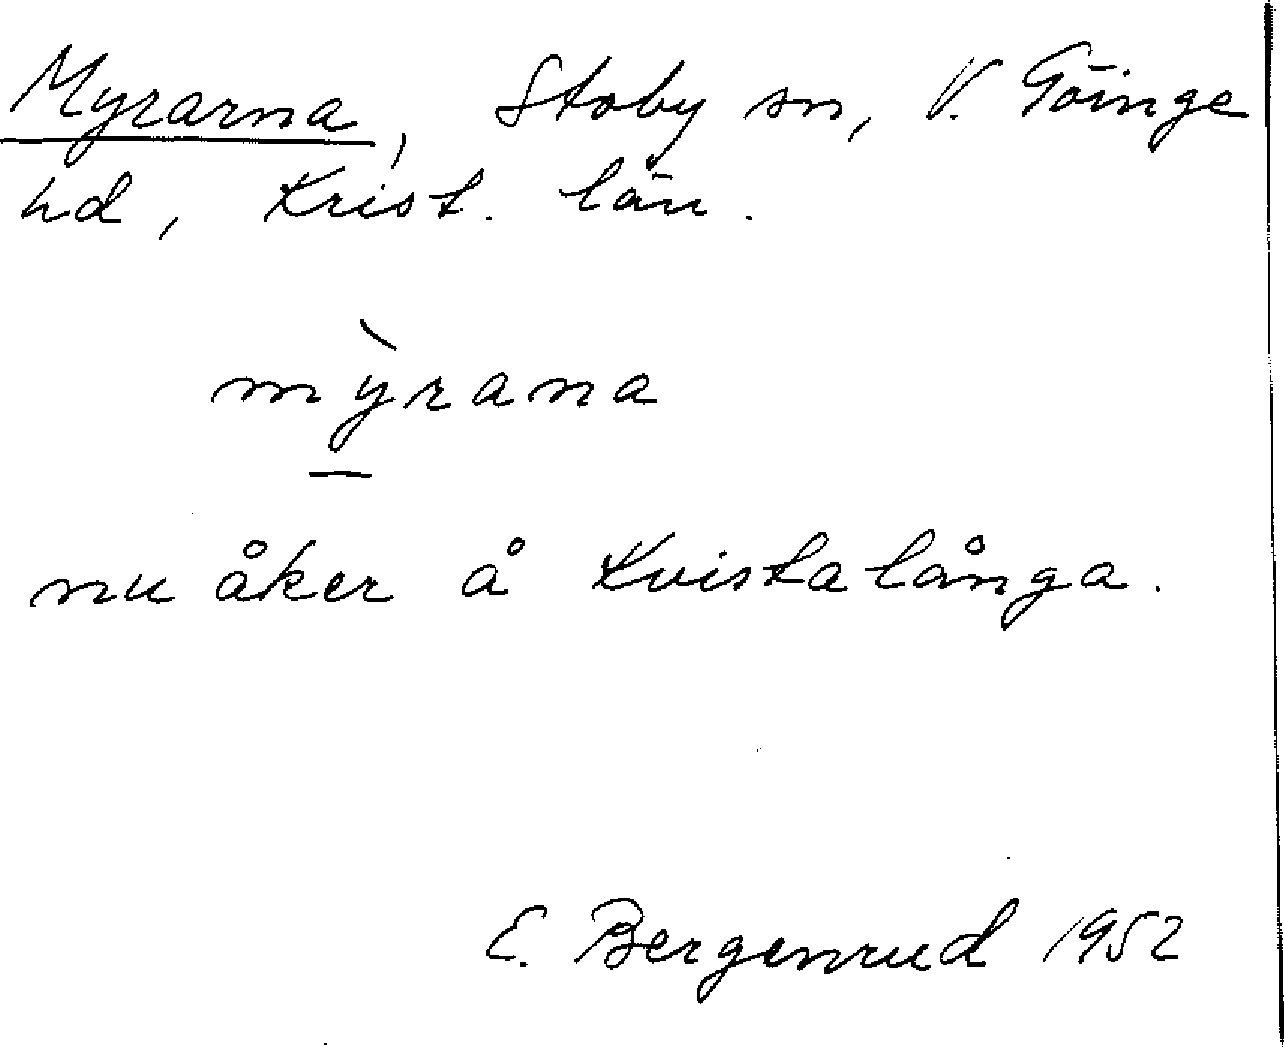 Myrarna, Stoby sn, V. Göinge
hd, Krist. län.
mỳrana
nu åker å Kvistalånga.
E. Bergenrud 1952